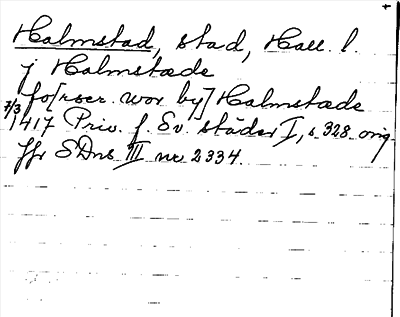 Halmstad, stad, Hall. l.
j Halmstade
fo[rscr. wor by] Halmstade
7/3 1417 Priv. f. Sv. städer I, s. 328. orig.
Jfr SDns III nr 2334.